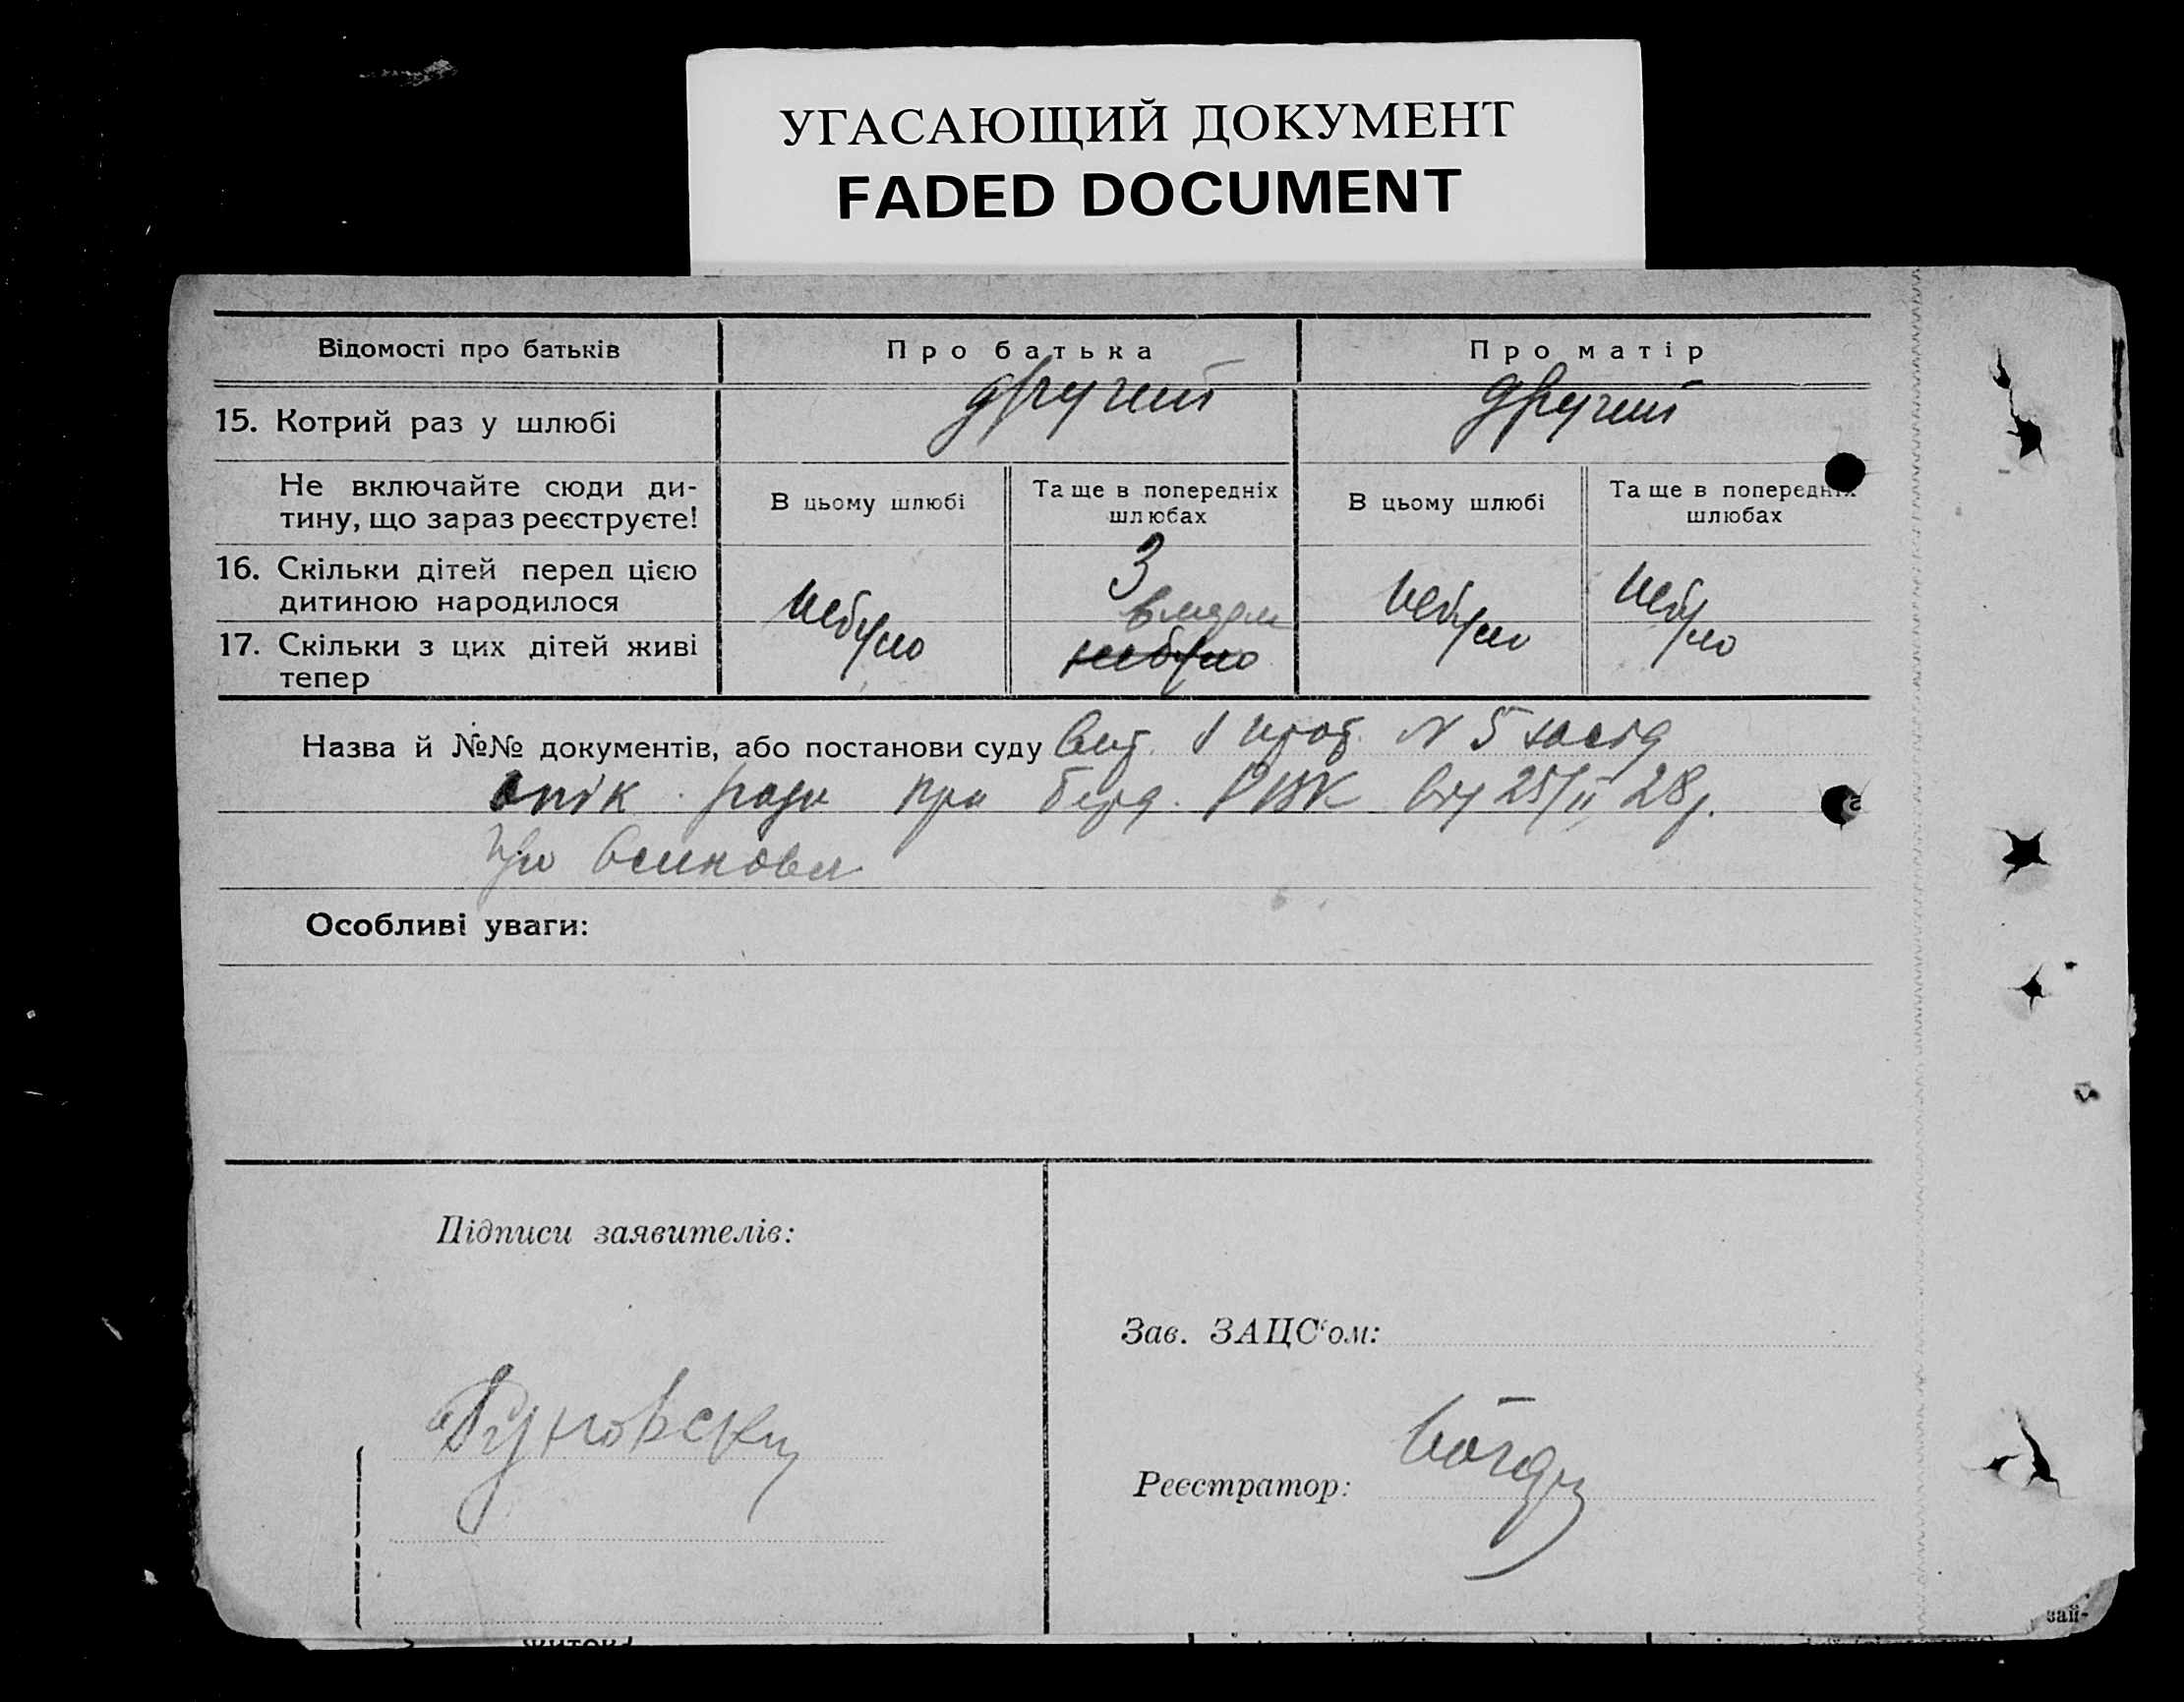 УГАСАЮЩИЙ ДОКУМЕНТ
FADED DOCUMENT
Відомості про батьків
Про батька
Про матір
15. Котрий раз у шлюбі
другий
другий
Не включайте сюди ди-
тину, що зараз реєструєте!
В цьому шлюбі
Та ще в попередніх
шлюбах
В цьому шлюбі
Та ще в попередніх
шлюбах
16. Скільки дітей перед цією
дитиною народилося
3
17. Скільки з цих дітей живі
тепер
небуло
небуло
небуло
небуло
Назва й №№ документів, або постанови суду Вит. N 5 засід
опік. ради при РВК від 25/II 28 р.
Про
Особливі уваги:
Підписи заявителів:
Зав. ЗАЦС‘ом:
Реєстратор:
зай-